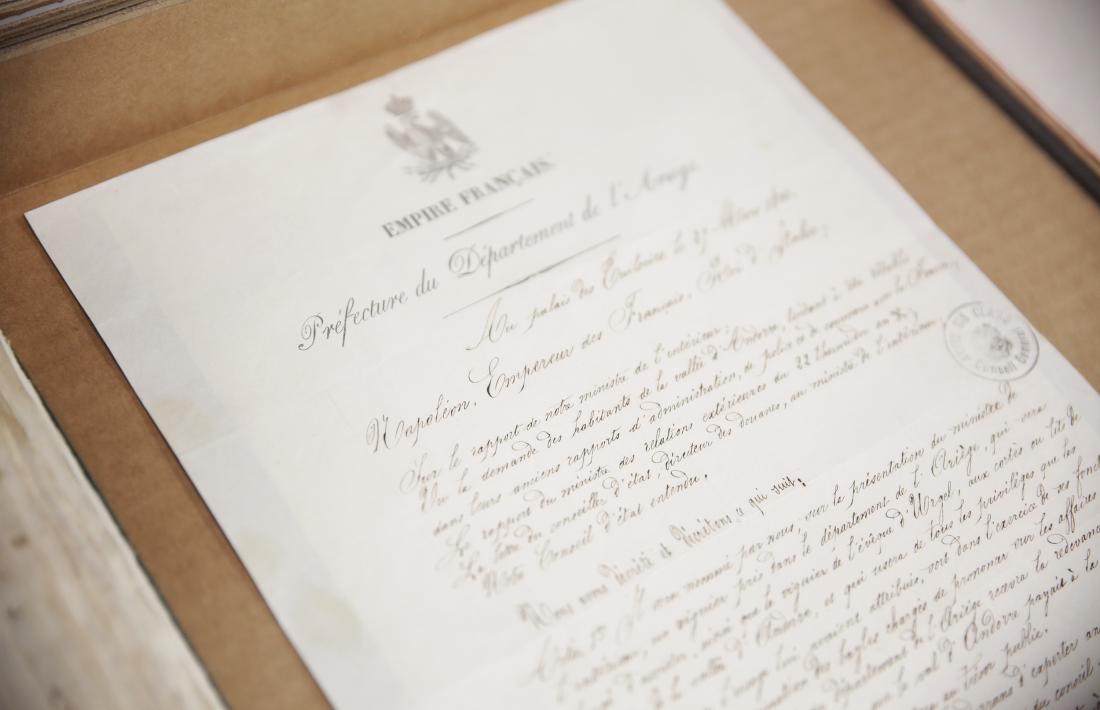 EMPIRE FRANÇAIS
Préfecture du Département de l'Ariège
Au palais des Tuileries le 27 Mars
Napoléon, Empereur des Français, Roi d'Italie;
Sur le rapport de notre ministre de l'intérieur;
Vu la demande des habitants de la vallée d'Andorre, tendant à être rétablis
dans leurs anciens rapports d'administration, de police et de commerce avec la France,
Le rapport du ministre des relations extérieures du 22 Thermidor an X,
La lettre du conseiller d'état directeur des douanes, au ministre de l'intérieur,
Notre Conseil d'état entendu,
Nous avons Décrété et Décrétons ce qui suit;
Il sera nommé par nous, sur la présentation du ministre de
l'intérieur, un viguier pris dans le département de l'Ariège, qui usera
ainsi que le viguier de l'évêque d'Urgel, aux cortès ou
de la vallée d'Andorre, et qui usera de tous les privilèges que les
l'usage lui avaient attribués, soit dans l'exercice de ses
des bayles chargés de prononcer sur les affaires
département de l'Ariège recevra la redevance
que le val d'Andorre payait à la
au trésor public.
d'exporter
du conseil
Conseil General